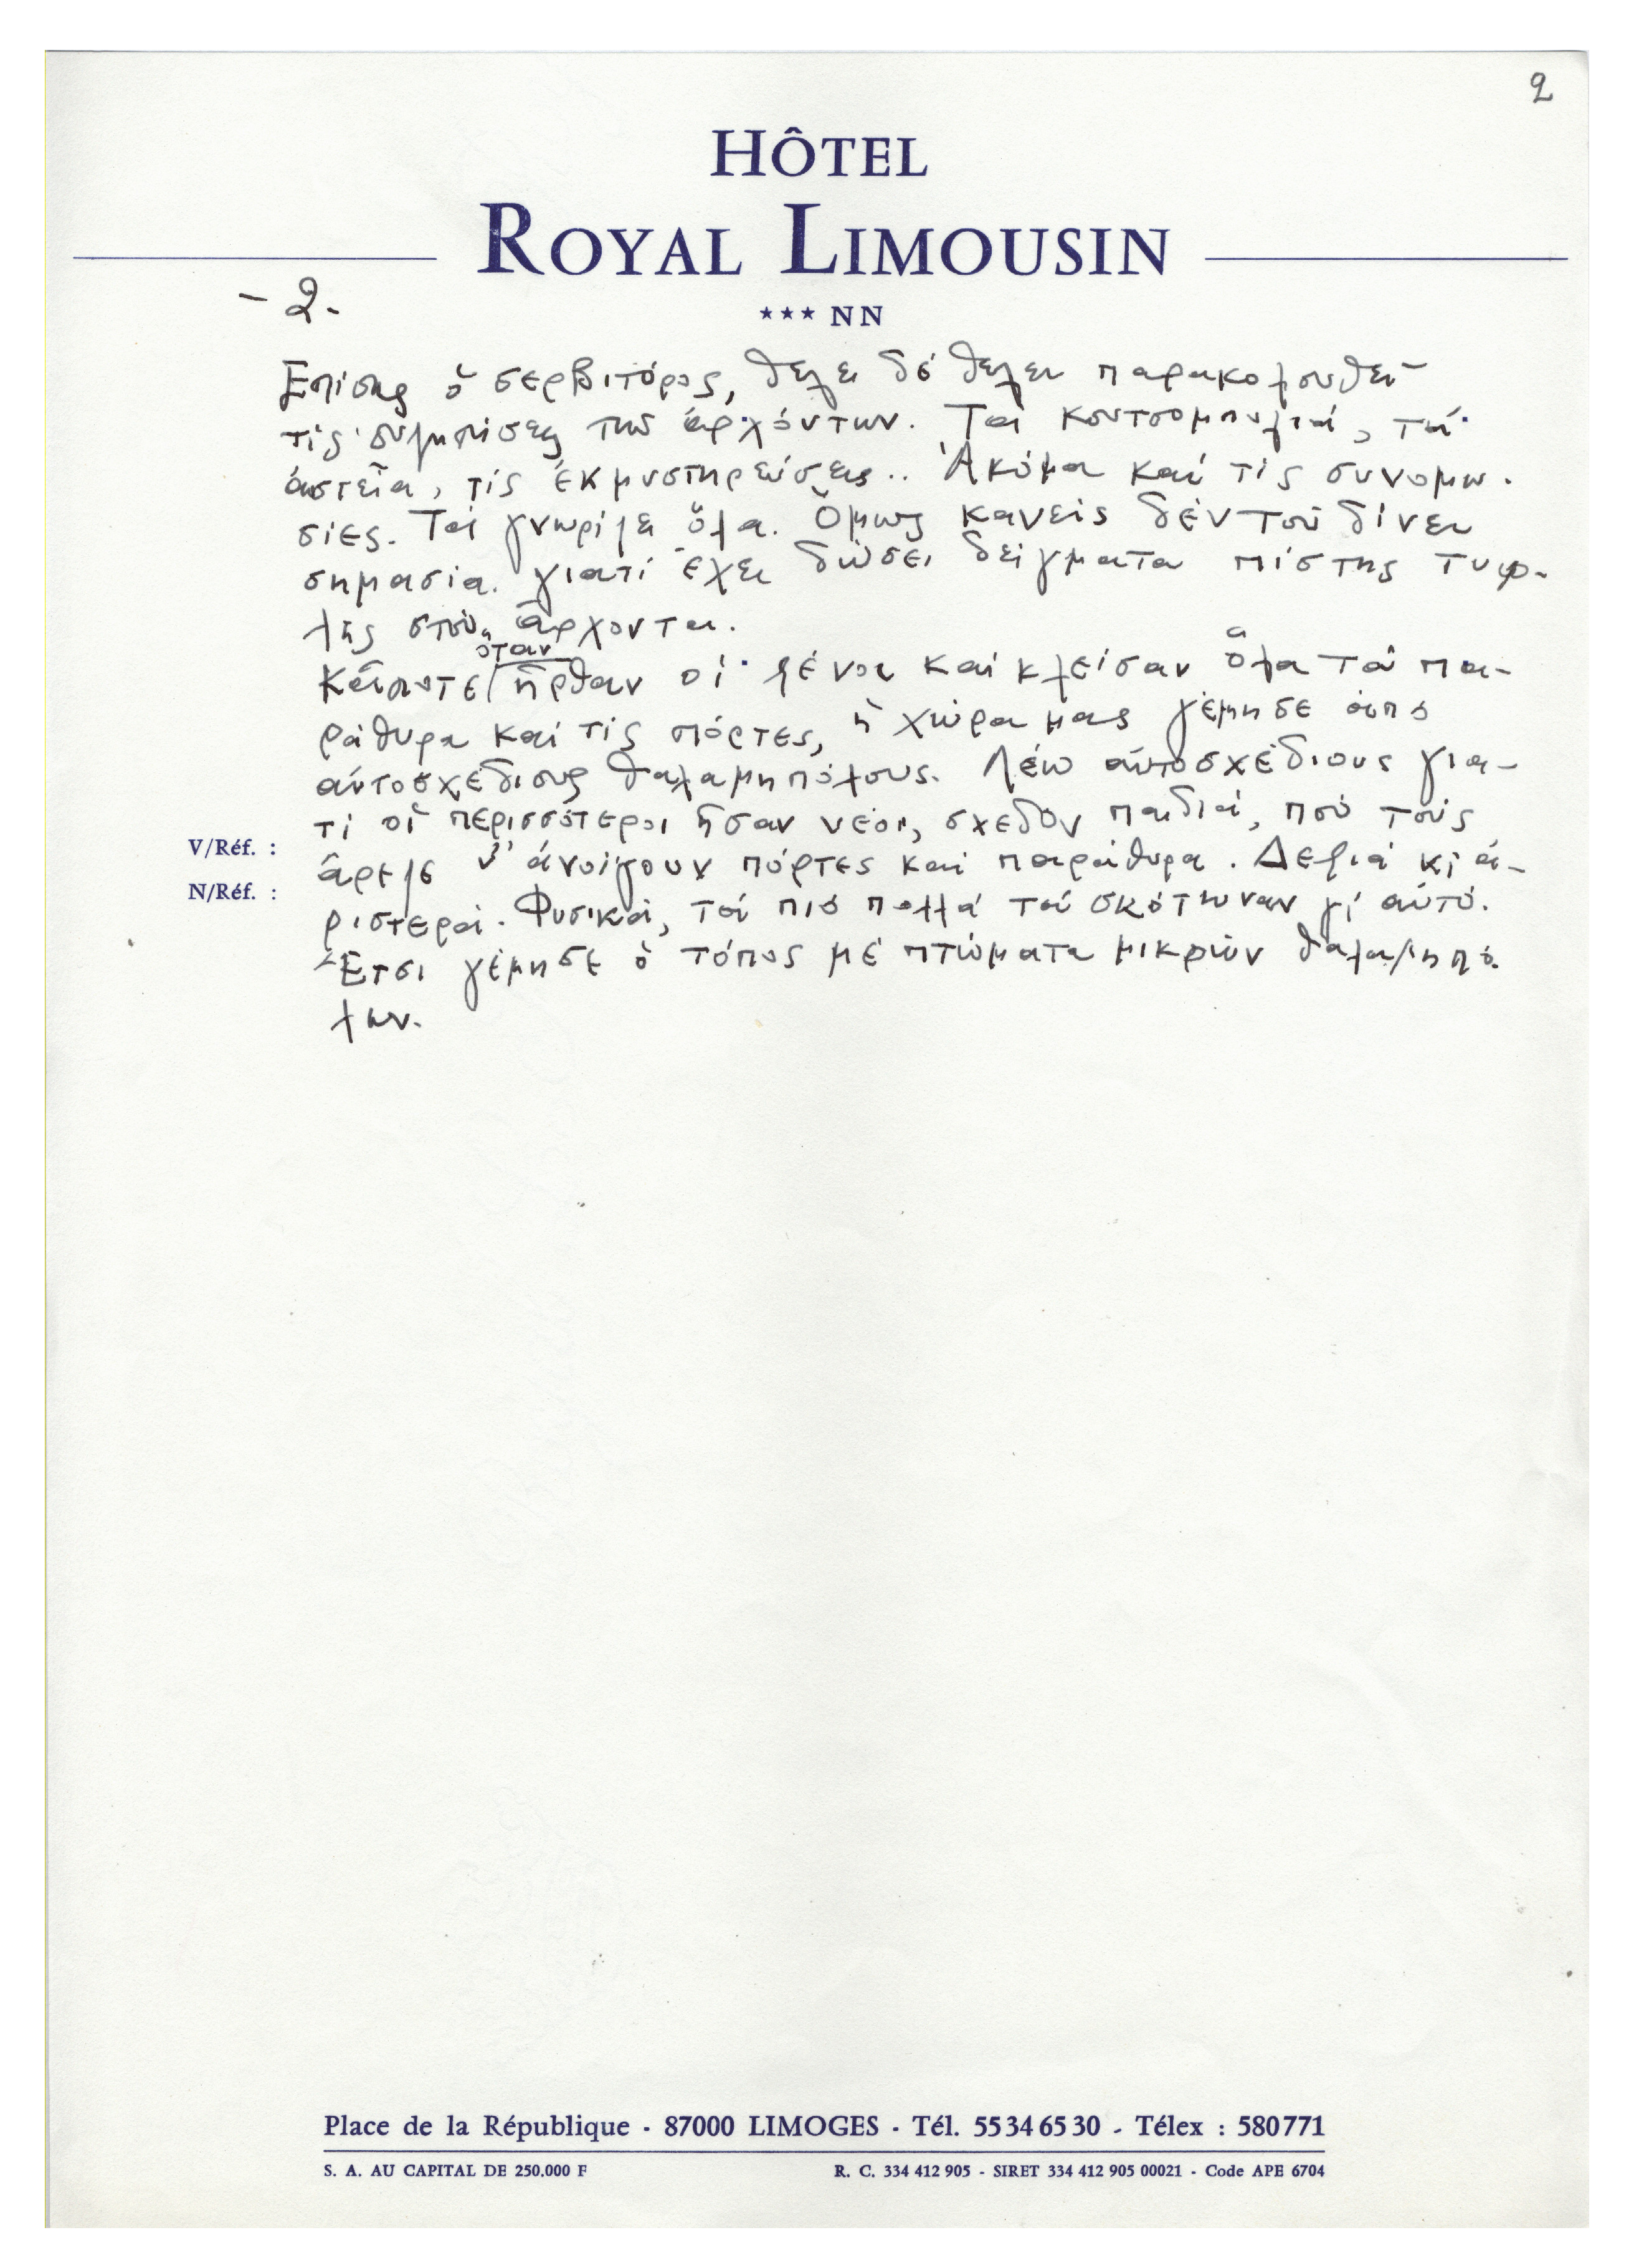 2
HÔTEL
ROYAL LIMOUSIN
*** NN
- 2.
Επίσης ὁ σερβιτόρος, θέλει δέ θέλει παρακολουθεῖ
τίς συζητήσεις τῶν ἀρχόντων. Τά κουτσομπολιά, τά
ἀστεῖα, τίς ἐκμυστηρεύσεις.. Ἀκόμα καί τίς συνομω-
σίες. Τά γνωρίζει ὅλα. Ὅμως κανείς δέν τοῦ δίνει
σημασία. γιατί ἔχει δώσει δείγματα πίστης τυφ-
λῆς στόν ἄρχοντα.
ὅταν
Κάποτε ἦρθαν οἱ ξένοι καί κλείσαν ὅλα τά πα-
ράθυρα καί τίς πόρτες, ἡ χώρα μας γέμησε ἀπό
αὐτοσχέδιους θαλαμηπόλους. Λέω αὐτοσχέδιους για-
τί οἱ περισσότεροι ἦσαν νέοι, σχεδόν παιδιά, πού τούς
V/Réf. :
ἄρεζε ν' ἀνοίγουν πόρτες καί παράθυρα. Δεξιά κι ἀ-
N/Réf. :
ριστερά. Φυσικά, τά πιό πολλά τά σκότωναν γι αὐτό.
Ἔτσι γέμησε ὁ τόπος μέ πτώματα μικρῶν θαλαμηπό-
λων.
Place de la République - 87000 LIMOGES - Tél. 55 34 65 30 - Télex : 580771
S. A. AU CAPITAL DE 250.000 F R. C. 334 412 905 - SIRET 334 412 905 00021 - Code APE 6704